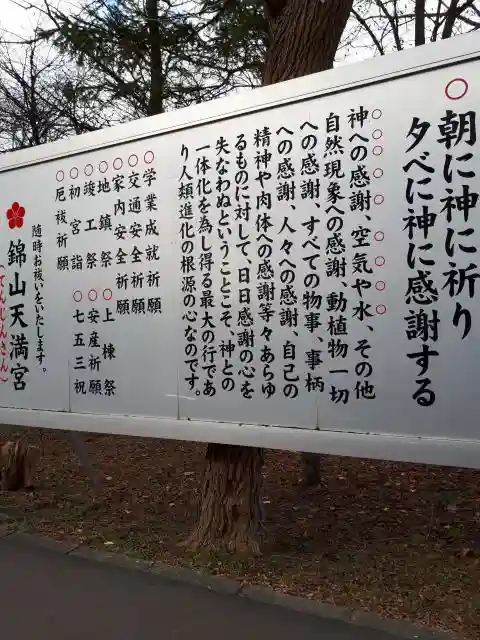 ○朝に神に祈り
夕べに神に感謝する
神への感謝、空気や水、その他
自然現象への感謝、動植物一切
への感謝、すべての物事、事柄
への感謝、人々への感謝、自己の
精神や肉体への感謝等々あらゆ
るものに対して、日日感謝の心を
失なわぬということこそ、神との
一体化を為し得る最大の行であ
り人類進化の根源の心なのです。
○学業成就祈願
○交通安全祈願
○家内安全祈願
○地鎮祭 ○上棟祭
○竣工祭 ○安産祈願
○初宮詣 ○七五三祝
○厄祓祈願
随時お祓いをいたします。
錦山天満宮
(てんじんさん)